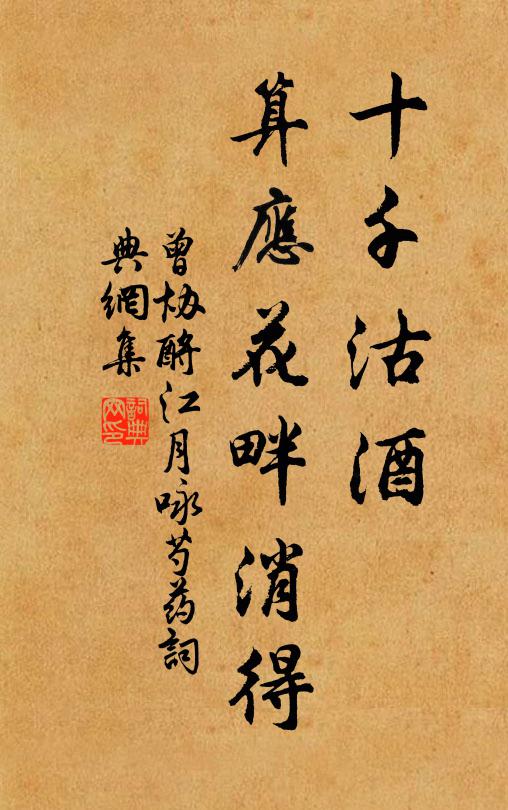 十千沽酒
算應花畔消得
曾协酹江月咏芍药詞
典網集
詞典
网印